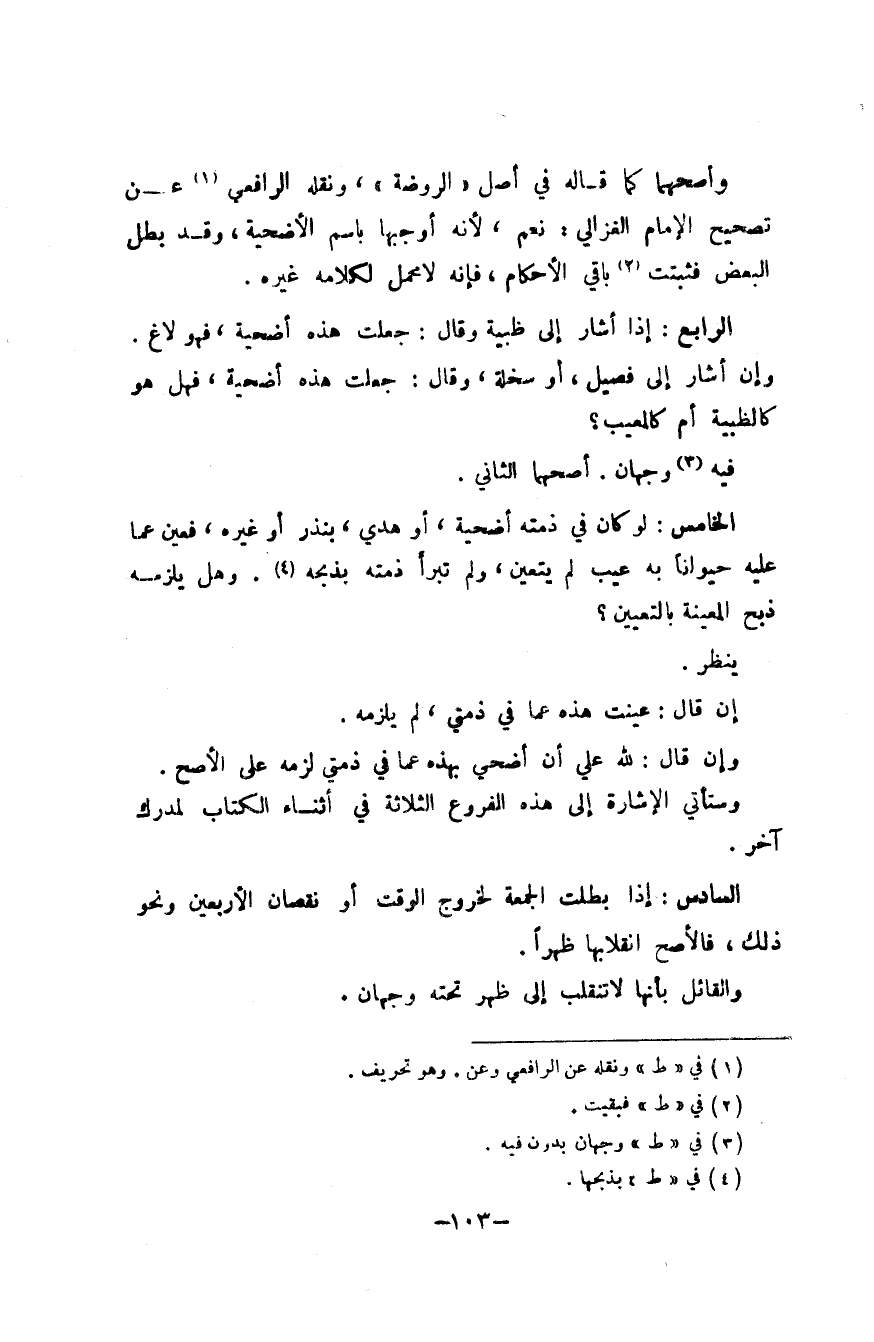 وأصحهما كما قـاله في أصل « الروضة » ، ونقله الرافعي (١) عـن
تصحيح الإمام الغزالي : نعم ، لأنه أوجبها باسم الأضحية ، وقـد بطل
البعض فثبتت (٢) باقي الأحكام ، فإنه لامحمل لكلامه غيره .
الرابع : إذا أشار إلى ظبية وقال : جعلت هذه أضحية ، فهو لاغ .
وإن أشار إلى فصيل ، أو سخلة ، وقال : جعلت هذه أضحية ، فهل هو
كالظبية أم كالمعيب ؟
فيه (٣) وجهان . أصحهما الثاني .
الخامس : لو كان في ذمته أضحية ، أو هدي ، بنذر أو غيره ، فعين عما
عليه حيواناً به عيب لم يتعين ، ولم تبرأ ذمته بذبحه (٤) . وهل يلزمـه
ذبح المعينة بالتعيين ؟
ينظر .
إن قال : عينت هذه عما في ذمتي ، لم يلزمه .
وإن قال : لله علي أن أضحي بهذه عما في ذمتي لزمه على الأصح .
وستأتي الإشارة إلى هذه الفروع الثلاثة في أثنـاء الكتاب لمدرك
آخر .
السادس : إذا بطلت الجمعة لخروج الوقت أو نقصان الأربعين ونحو
ذلك ، فالأصح انقلابها ظهراً .
والقائل بأنها لاتنقلب إلى ظهر تحته وجهان .
(١) في « ط » ونقله عن الرافعي وعن . وهو تحريف .
(٢) في « ط » فبقيت .
(٣) في « ط » وجهان بدون فيه .
(٤) في « ط » بذبحها .
–١٠٣–